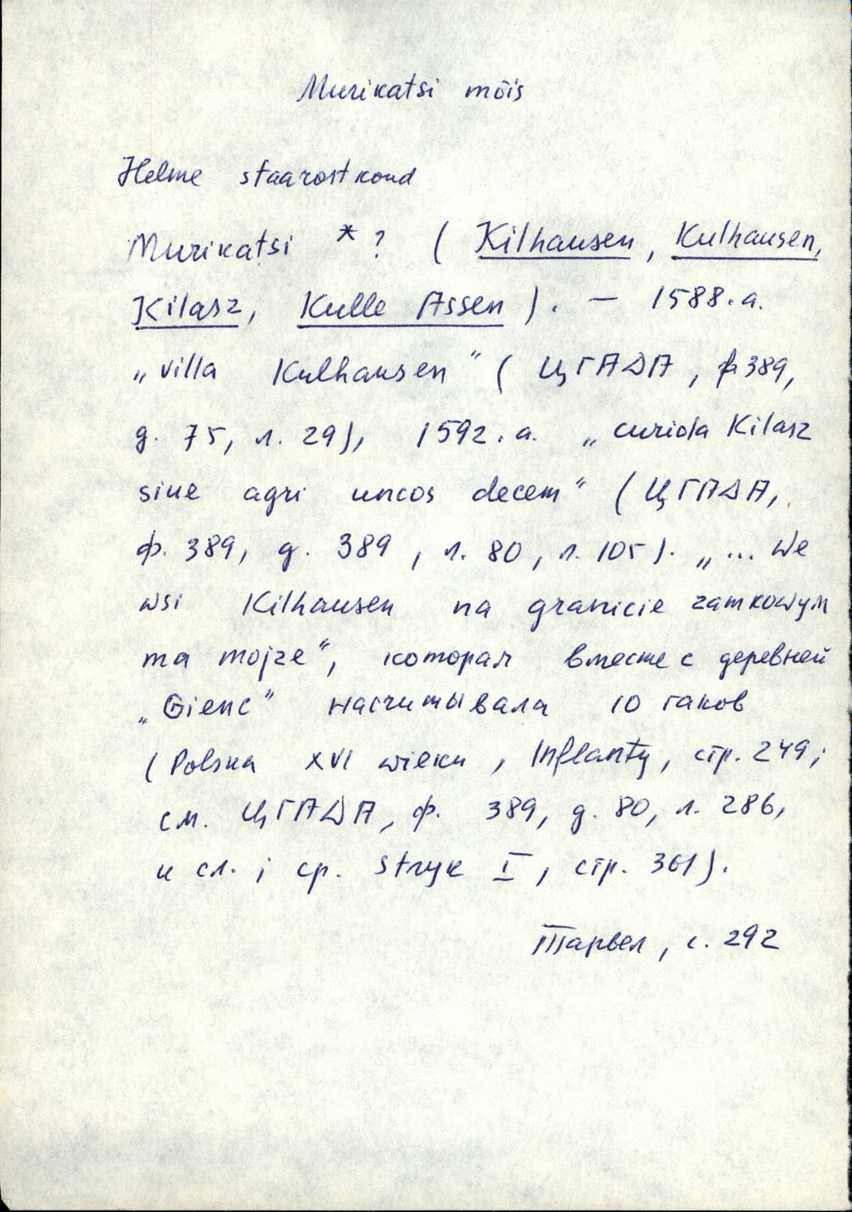 Murikatsi mõis
Helme staarostkond
Murikatsi * ? ( Kilhausen, Kulhausen,
Kilasz, Kulle Assen ). — 1588. a.
„villa Kulhausen" ( ЦГАДА, ф. 389,
д. 75, л. 29), 1592. a. „curiola Kilasz
sive agri uncos decem" (ЦГАДА,
ф. 389, д. 389, л. 80, л. 105). „... We
wsi Kilhausen na granicie zamkowym
ma mojze", которая вместе с деревней
„Gienc" насчитывала 10 гаков
(Polska XVI wieku, Inflanty, стр. 249;
см. ЦГАДА, ф. 389, д. 80, л. 286,
и сл. ; ср. Stryk I, стр. 361).
Тарвел, с. 292